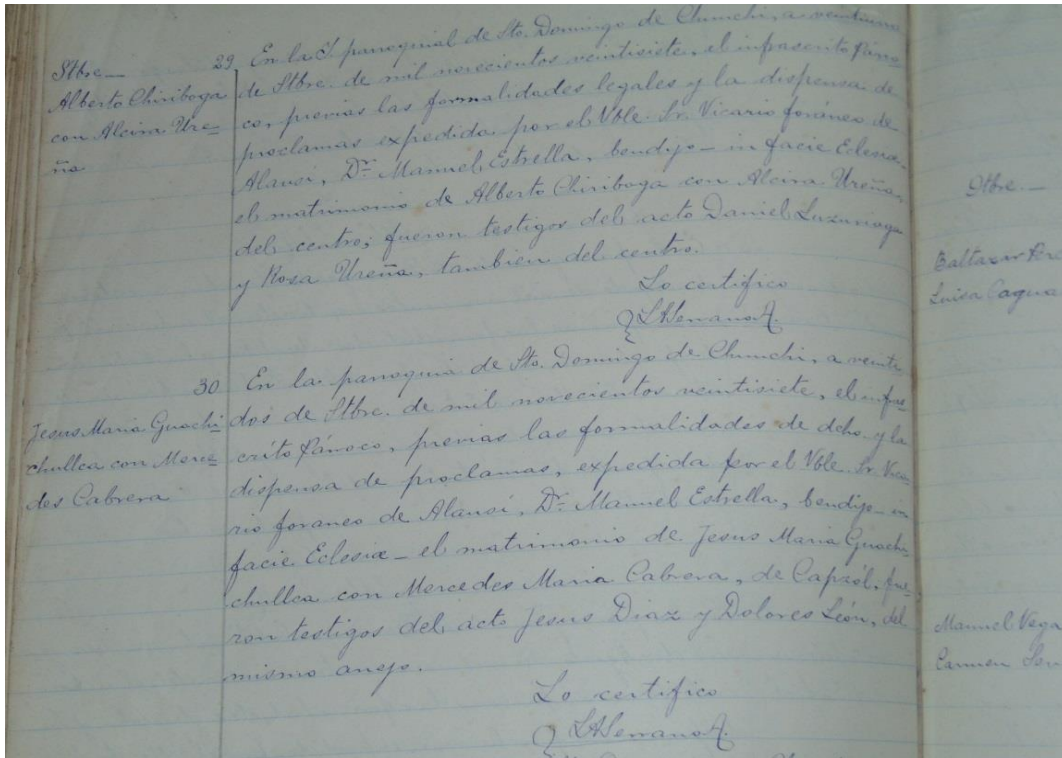 Stbre—
Alberto Chiriboga
con Alcira Ure=
ña
29 En la I. parroquial de Sto. Domingo de Chunchi, a veintiuno
de Stbre. de mil novecientos veintisiete, el infrascrito Párro
co, previas las formalidades legales y la dispensa de
proclamas expedida por el Vble. Sr. Vicario foráneo de
Alausí, Dr. Manuel Estrella, bendijo— in facie Eclesiæ
el matrimonio de Alberto Chiriboga con Alcira Ureña,
del centro; fueron testigos del acto Daniel Luzuriaga
y Rosa Ureña, tambien del centro.
Lo certifico
LASerrano A.
Jesus Maria Guachi
chullca con Merce
des Cabrera
30 En la parroquia de Sto. Domingo de Chunchi, a veinti
dos de Stbre. de mil novecientos veintisiete, el infras
crito Párroco, previas las formalidades de dcho. y la
dispensa de proclamas, expedida por el Vble. Sr. Vica
rio foraneo de Alausí, Dr. Manuel Estrella, bendijo— in
facie Eclesiæ— el matrimonio de Jesus Maria Guachi
chullca con Mercedes Maria Cabrera, de Capzól, fue
ron testigos del acto Jesus Diaz y Dolores León, del
mismo anejo.
Lo certifico
LASerrano A.
9tbre—
Baltazar
Luisa Cagua
Manuel Vega
Carmen